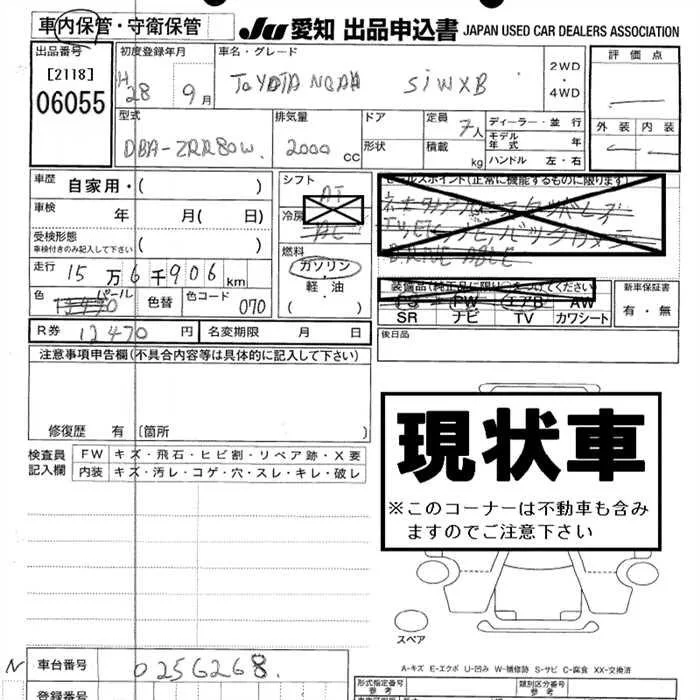 車内保管・守衛保管 Ju 愛知 出品申込書 JAPAN USED CAR DEALERS ASSOCIATION
出品番号 初度登録年月 車名・グレード 2WD・4WD 評価点
[2118] H28 9月 TOYOTA NOAH SiWXB
06055
型式 排気量 ドア 定員 7人 ディーラー・並行 外装 内装
DBA-ZRR80W 2000cc 形状 積載 kg モデル年式 年
ハンドル 左・右
車歴 自家用・( ) シフト AT セールスポイント(正常に機能するものに限ります)
車検 年 月( 日) 冷房 AC
受検形態 車検付きのみ記入して下さい ( ) DRIVE ABLE
走行 15万6千906km 燃料 ガソリン・軽油 ( )
色 パール 色替 色コード 070 装備品(純正品に限り○をつけてください) 新車保証書
PS PW エアB AW 有・無
SR ナビ TV カワシート
R券 12470円 名変期限 月 日 後日品
注意事項申告欄(不具合内容等は具体的に記入して下さい)
修復歴 有 〔箇所 〕
検査員記入欄 FW キズ・飛石・ヒビ割・リペア跡・X要
内装 キズ・汚レ・コゲ・穴・スレ・キレ・破レ
現状車
※このコーナーは不動車も含み
ますのでご注意下さい
スペア
A-キズ E-エクボ U-凹み W-補修跡 S-サビ C-腐食 XX-交換済
N 車台番号 0256268
登録番号 形式指定番号 参考 類別区分番号 参考